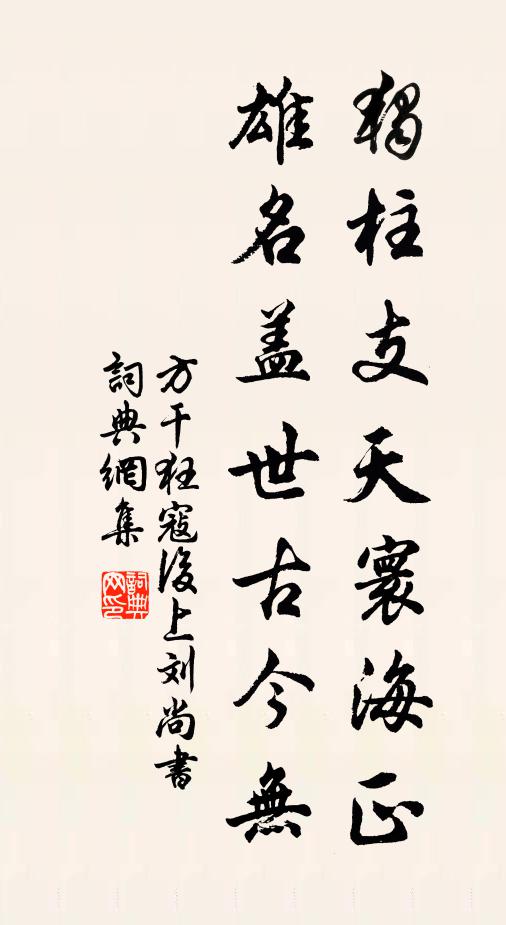 獨柱支天寰海正
雄名盖世古今無
方干狂寇後上刘尚書
詞典網集
詞典網印